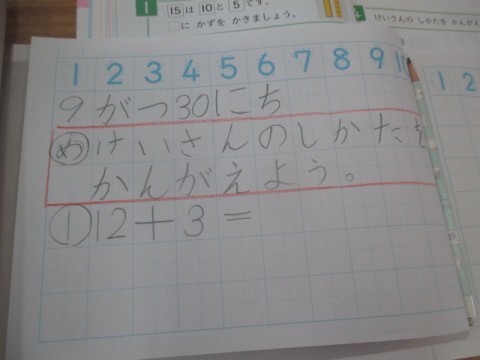 1
15は10と5です。
□にかずをかきましょう。
けいさんのしかたをかんがえ
1 2 3 4 5 6 7 8 9 10
1 2
9がつ30にち
め けいさんのしかたを
かんがえよう。
①12+3=